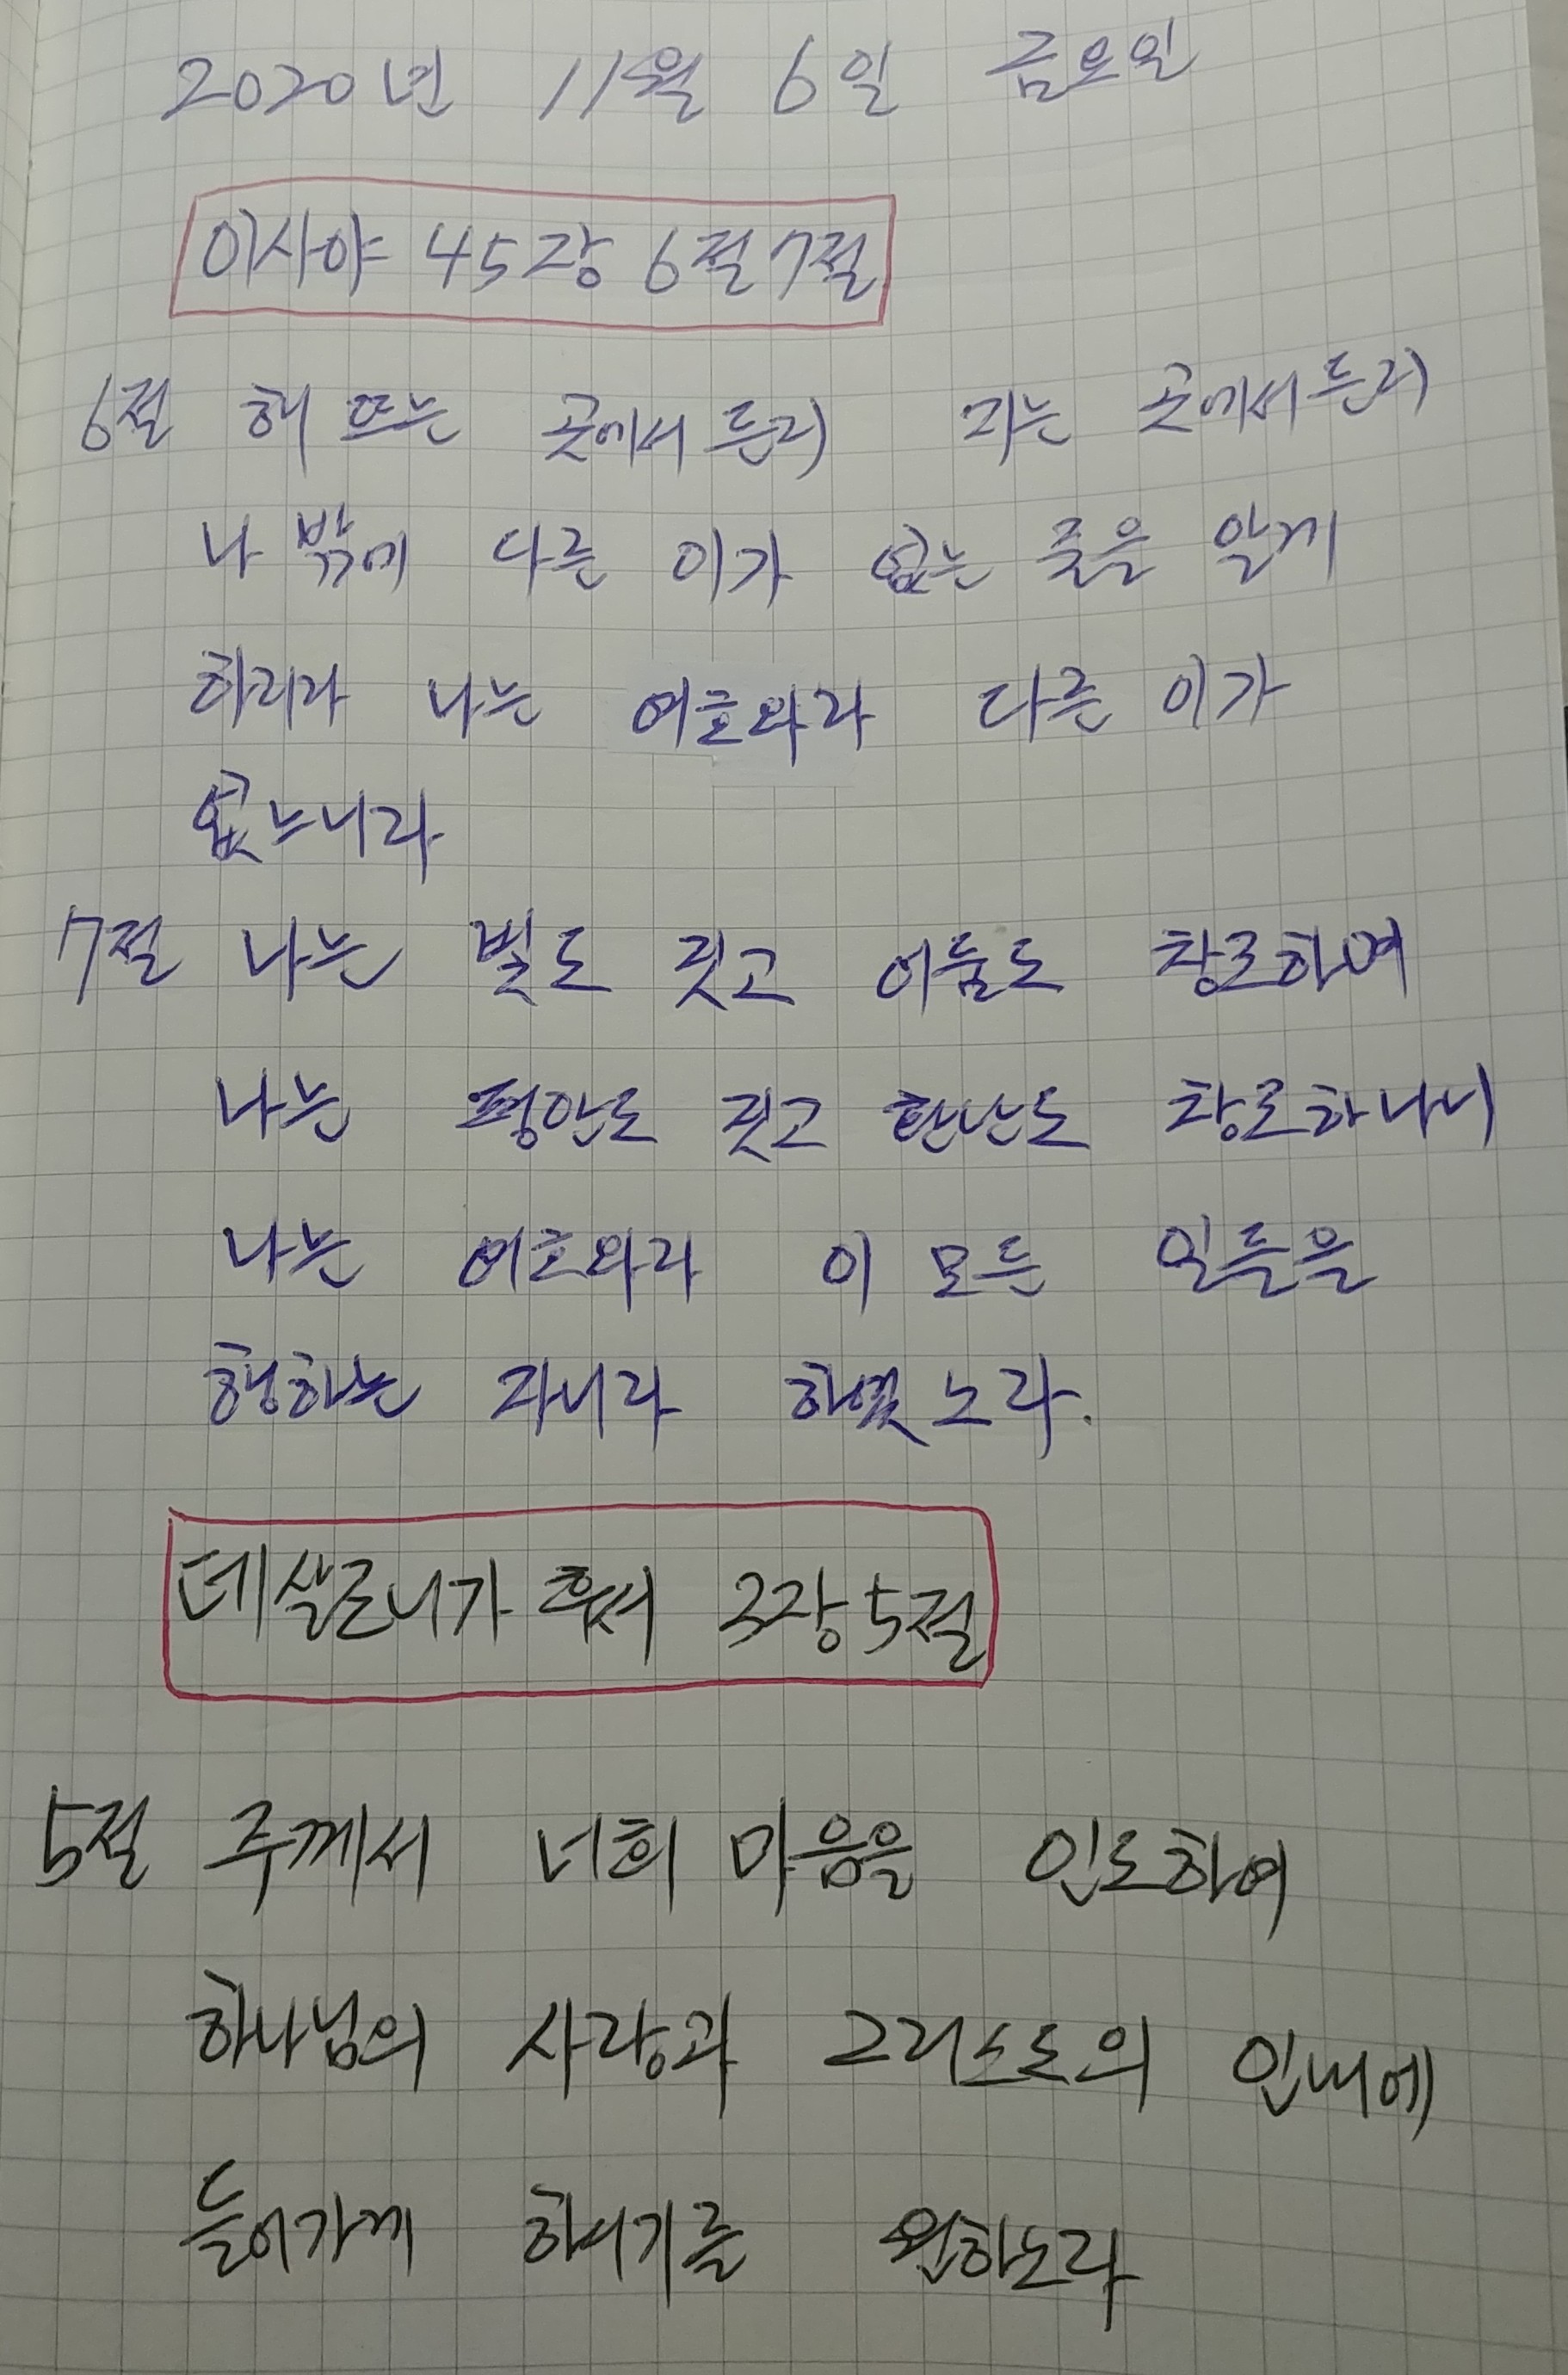 2020년 11월 6일 금요일
이사야 45장 6절 7절
6절 해 뜨는 곳에서든지 지는 곳에서든지
나 밖에 다른 이가 없는 줄을 알게
하리라 나는 여호와라 다른 이가
없느니라
7절 나는 빛도 짓고 어둠도 창조하며
나는 평안도 짓고 환난도 창조하나니
나는 여호와라 이 모든 일들을
행하는 자니라 하였노라.
데살로니가 후서 3장 5절
5절 주께서 너희 마음을 인도하여
하나님의 사랑과 그리스도의 인내에
들어가게 하시기를 원하노라